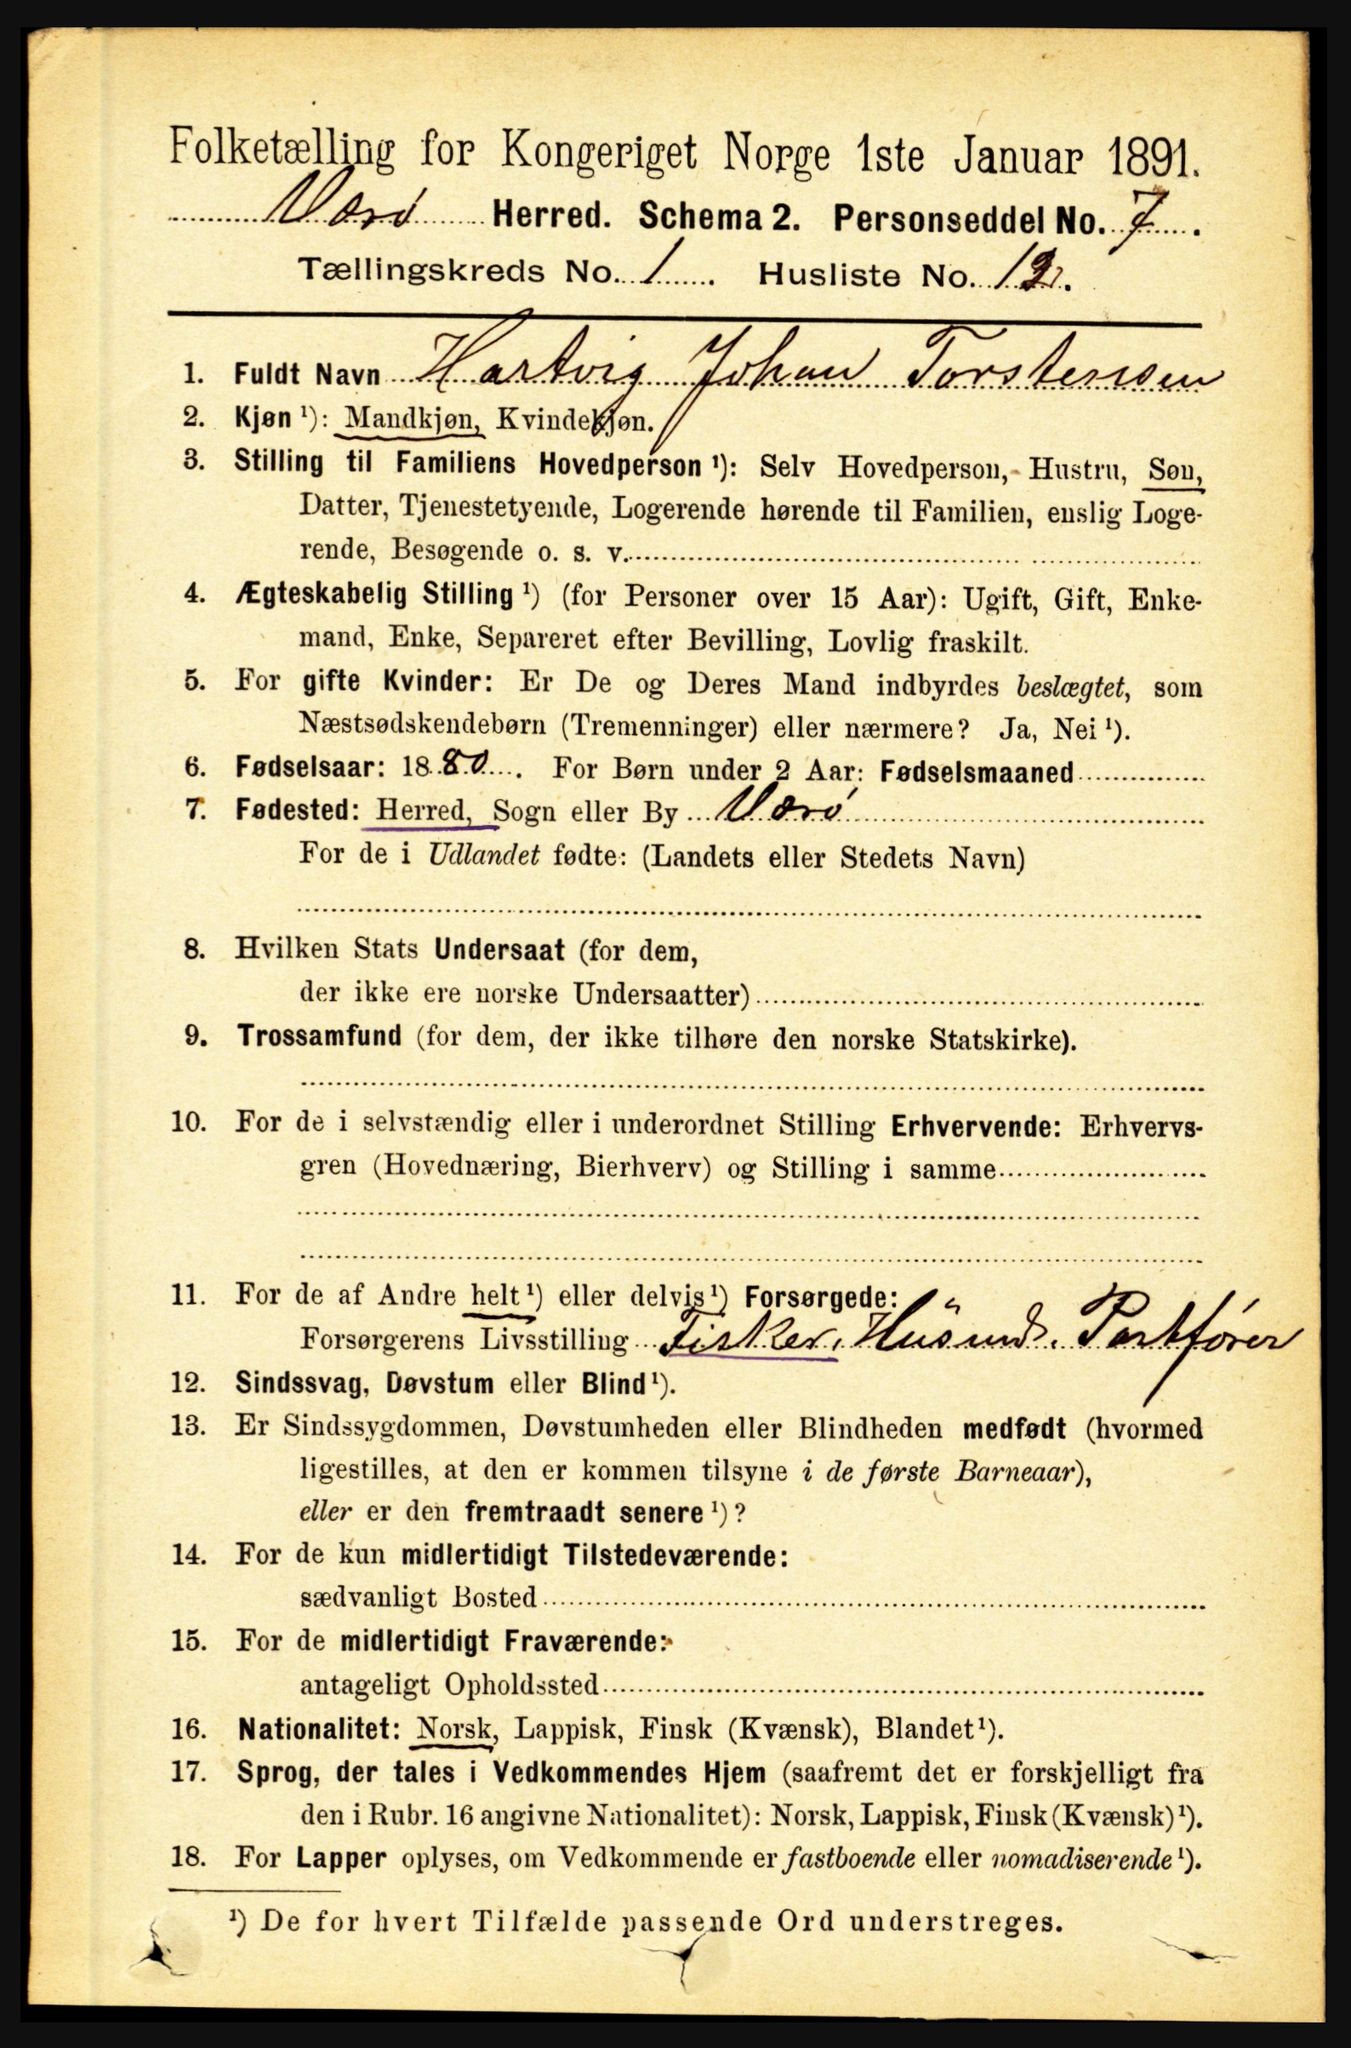 Folketælling for Kongeriget Norge 1ste Januar 1891.
Værø Herred. Schema 2. Personseddel No. 7.
Tællingskreds No. 1. Husliste No. 12.
1. Fuldt Navn Hartvig Johan Torstensen
2. Kjøn ¹): Mandkjøn, Kvindekjøn.
3. Stilling til Familiens Hovedperson ¹): Selv Hovedperson, Hustru, Søn,
Datter, Tjenestetyende, Logerende hørende til Familien, enslig Loge-
rende, Besøgende o. s. v.
4. Ægteskabelig Stilling ¹) (for Personer over 15 Aar): Ugift, Gift, Enke-
mand, Enke, Separeret efter Bevilling, Lovlig fraskilt.
5. For gifte Kvinder: Er De og Deres Mand indbyrdes beslægtet, som
Næstsødskendebørn (Tremenninger) eller nærmere? Ja, Nei ¹).
6. Fødselsaar: 1880. For Børn under 2 Aar: Fødselsmaaned
7. Fødested: Herred, Sogn eller By Værø
For de i Udlandet fødte: (Landets eller Stedets Navn)
8. Hvilken Stats Undersaat (for dem,
der ikke ere norske Undersaatter)
9. Trossamfund (for dem, der ikke tilhøre den norske Statskirke).
10. For de i selvstændig eller i underordnet Stilling Erhvervende: Erhvervs-
gren (Hovednæring, Bierhverv) og Stilling i samme
11. For de af Andre helt ¹) eller delvis ¹) Forsørgede:
Forsørgerens Livsstilling Fisker, Husmd.
12. Sindssvag, Døvstum eller Blind ¹).
13. Er Sindssygdommen, Døvstumheden eller Blindheden medfødt (hvormed
ligestilles, at den er kommen tilsyne i de første Barneaar),
eller er den fremtraadt senere ¹)?
14. For de kun midlertidigt Tilstedeværende:
sædvanligt Bosted
15. For de midlertidigt Fraværende:
antageligt Opholdssted
16. Nationalitet: Norsk, Lappisk, Finsk (Kvænsk), Blandet ¹).
17. Sprog, der tales i Vedkommendes Hjem (saafremt det er forskjelligt fra
den i Rubr. 16 angivne Nationalitet): Norsk, Lappisk, Finsk (Kvænsk) ¹).
18. For Lapper oplyses, om Vedkommende er fastboende eller nomadiserende ¹).
¹) De for hvert Tilfælde passende Ord understreges.